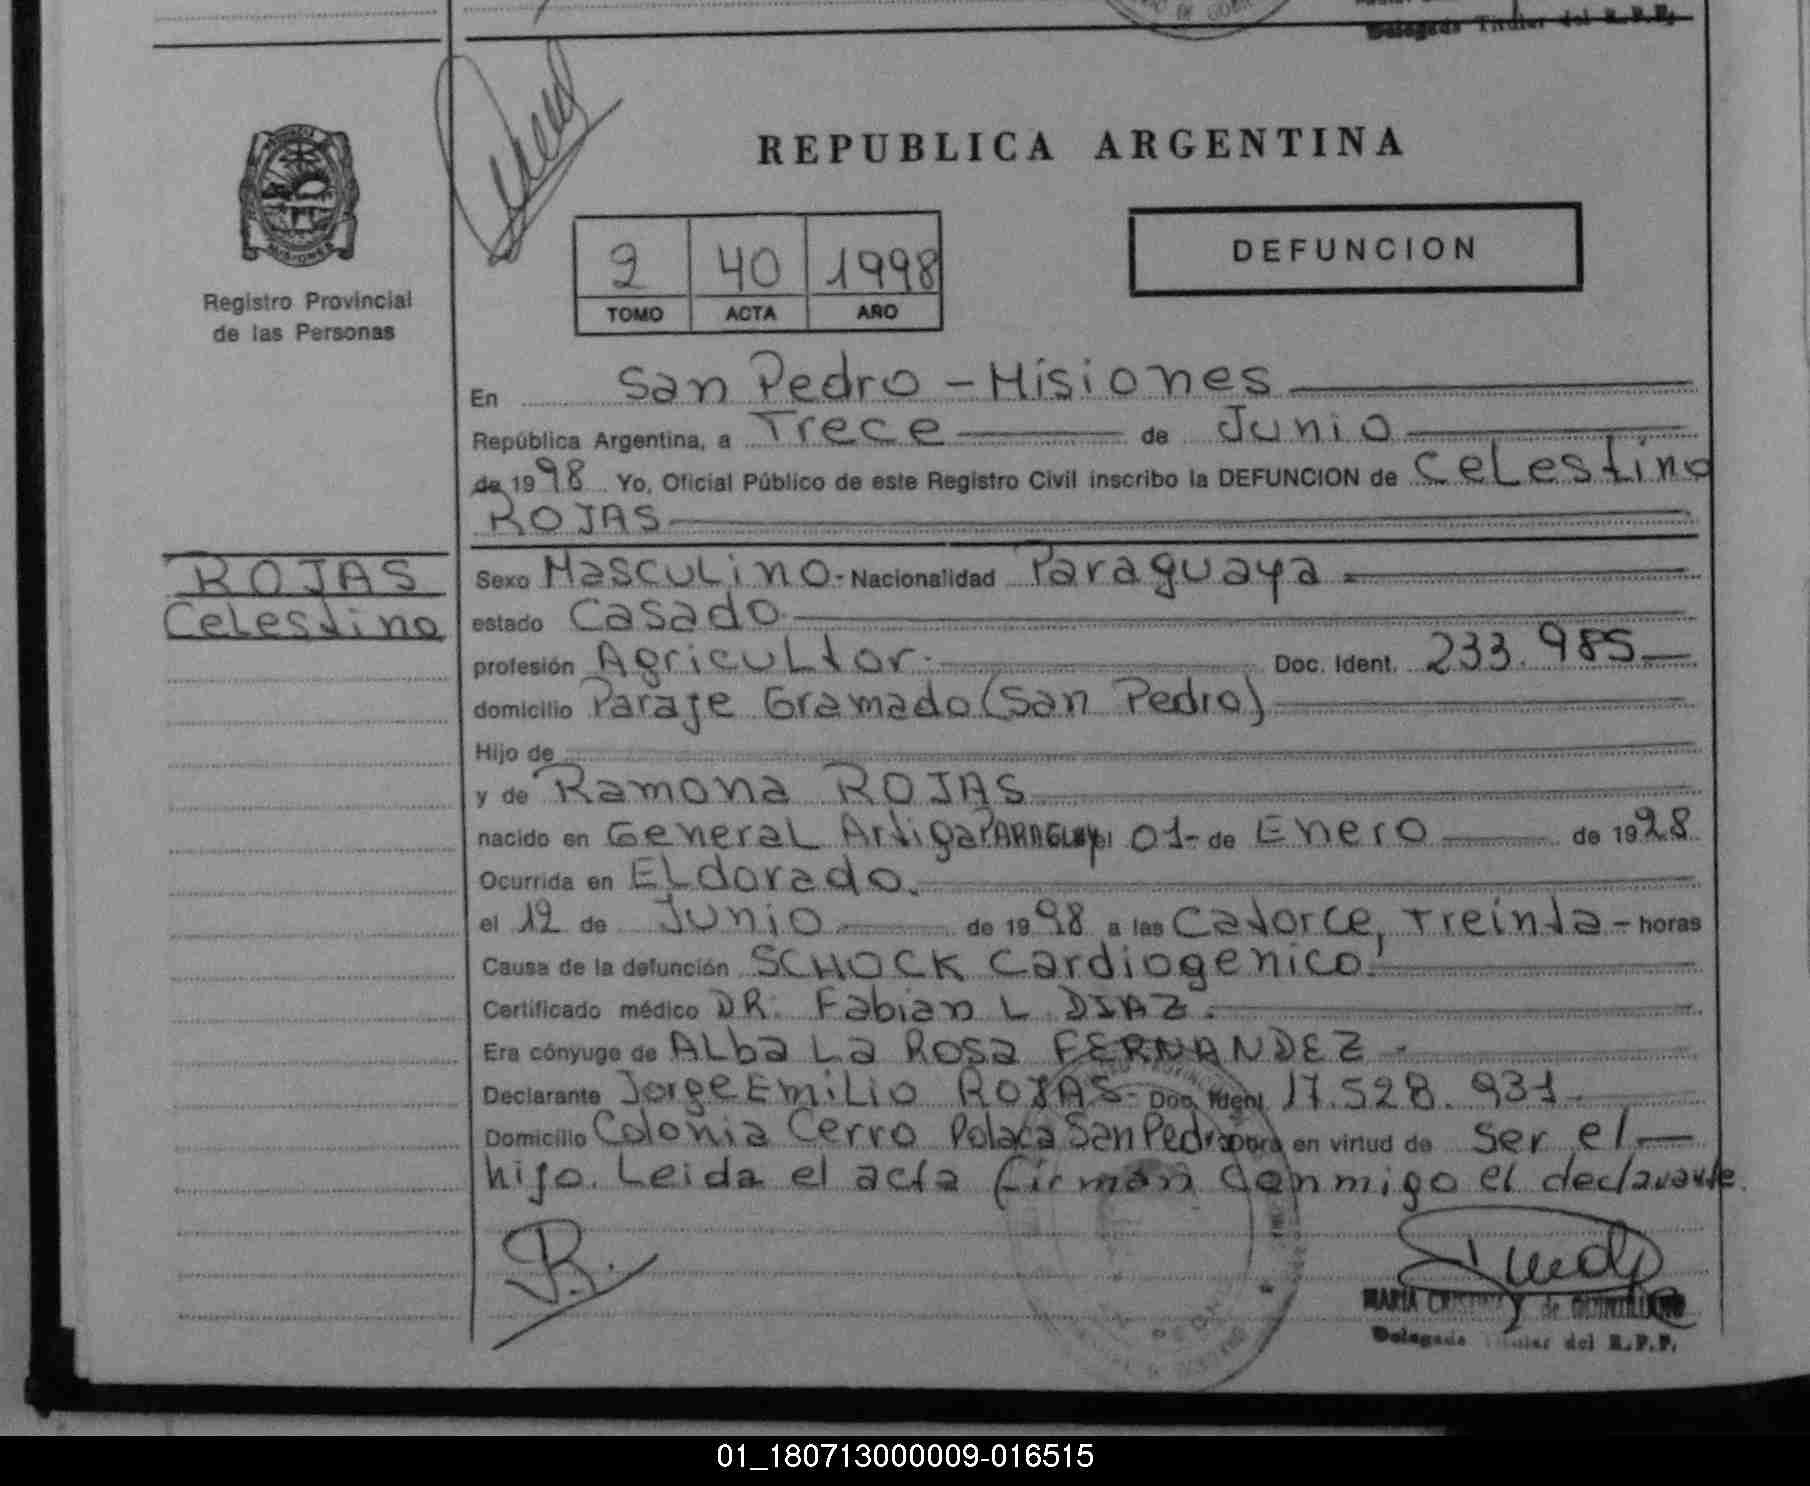 Delegada Titular del R.P.P.
REPUBLICA ARGENTINA
2 40 1998
TOMO ACTA AÑO
DEFUNCION
Registro Provincial
de las Personas
En San Pedro - Misiones
República Argentina, a Trece de Junio
de 1998 Yo, Oficial Público de este Registro Civil inscribo la DEFUNCION de Celestino
ROJAS
ROJAS
Celestino
Sexo Masculino - Nacionalidad Paraguaya
estado Casado
profesión Agricultor. Doc. Ident. 233.985
domicilio Paraje Gramado (San Pedro)
Hijo de
y de Ramona ROJAS
nacido en General Artiga PARAGUAY el 01 - de Enero de 1928
Ocurrida en ELdorado.
el 12 de Junio de 1998 a las Catorce, Treinta - horas
Causa de la defunción SCHOCK Cardiogenico.
Certificado médico DR. Fabian L DIAZ.
Era cónyuge de ALba La Rosa FERNANDEZ -
Declarante Jorge Emilio ROJAS - Doc. Ident. 17.528.931
Domicilio Colonia Cerro Polaca San Pedro para en virtud de ser el
hijo. Leida el acta firman conmigo el declarante.
MARIA CRISTINA de
Delegada Titular del R.P.P.
01_180713000009-016515